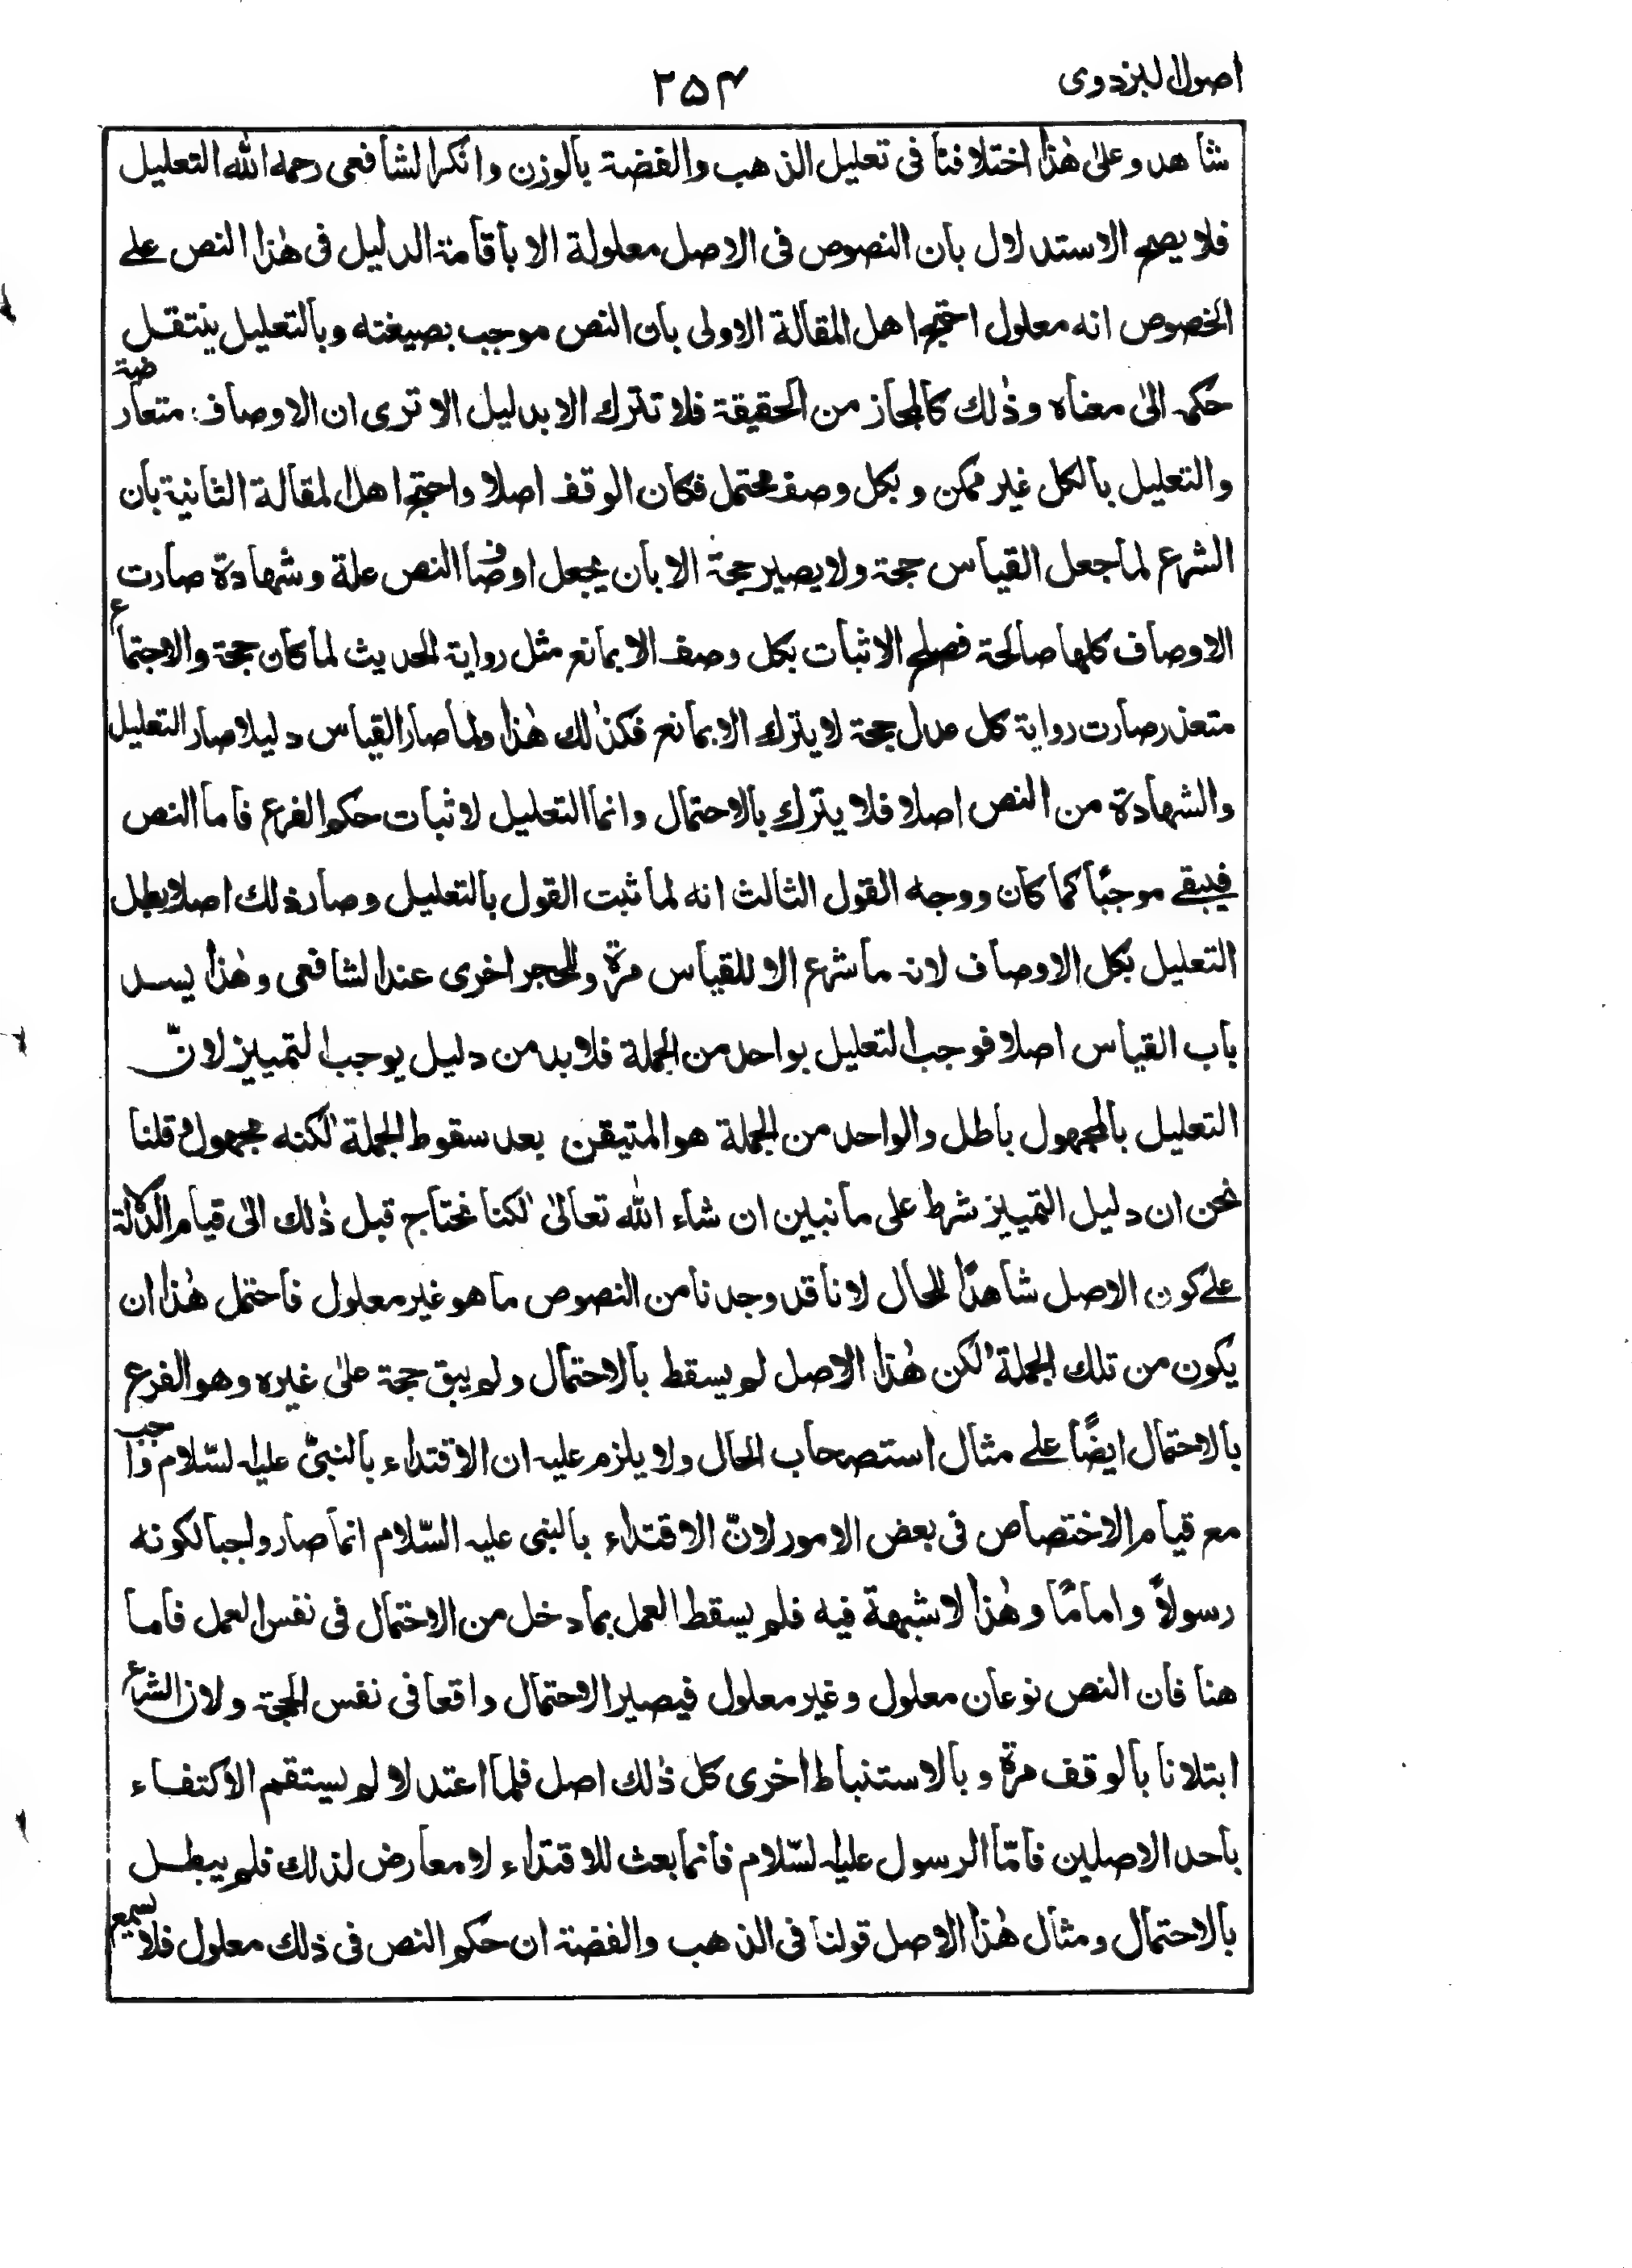 اصول البزدوی
۲۵۴
شاهد وعلى هٰذا اختلافنا فى تعليل الذهب والفضة بالوزن وانكر الشافعى رحمه الله التعليل
فلا يصح الاستدلال بان النصوص فى الاصل معلولة الا باقامة الدليل فى هٰذا النص على
الخصوص انه معلول احتج اهل المقالة الاولى بان النص موجب بصيغته وبالتعليل ينتقل
حكمه الى معناه وذٰلك كالمجاز من الحقيقة فلا تترك الا بدليل الا ترى ان الاوصاف متعارضة
والتعليل بالكل غير ممكن وبكل وصف محتمل فكان الوقف اصلا واحتج اهل المقالة الثانية بان
الشرع لما جعل القياس حجة ولا يصير حجة الا بان يجعل اوصاف النص علة وشهادة صارت
الاوصاف كلها صالحة فصلح الاثبات بكل وصف الا بمانع مثل رواية الحديث لما كان حجة والاجتماع
متعذر صارت رواية كل عدل حجة لا يترك الا بمانع فكذٰلك هٰذا ولما صار القياس دليلا صار التعليل
والشهادة من النص اصلا فلا يترك بالاحتمال وانما التعليل لاثبات حكم الفرع فاما النص
فيبقى موجبًا كما كان ووجه القول الثالث انه لما ثبت القول بالتعليل وصار ذلك اصلا بطل
التعليل بكل الاوصاف لانه ما شرع الا للقياس مرة وللحجر اخرى عند الشافعى وهٰذا يسد
باب القياس اصلا فوجب التعليل بواحد من الجملة فلا بد من دليل يوجب التمييز لانّ
التعليل بالمجهول باطل والواحد من الجملة هو المتيقن بعد سقوط الجملة لٰكنه مجهول وقلنا
نحن ان دليل التمييز شرط على ما نبين ان شاء الله تعالىٰ لٰكنا نحتاج قبل ذٰلك الى قيام الدلالة
على كون الاصل شاهدًا للحال لانا قد وجدنا من النصوص ما هو غير معلول فاحتمل هٰذا ان
يكون من تلك الجملة لٰكن هٰذا الاصل لم يسقط بالاحتمال ولم يبق حجة على غيره وهو الفرع
بالاحتمال ايضًا على مثال استصحاب الحال ولا يلزم عليه ان الاقتداء بالنبىّ عليه السّلام واجب
مع قيام الاختصاص فى بعض الامور لانّ الاقتداء بالنبى عليه السّلام انما صار واجبا لكونه
رسولاً وامامًا وهٰذا لا شبهة فيه فلم يسقط العمل بما دخل من الاحتمال فى نفس العمل فاما
هنا فان النص نوعان معلول وغير معلول فيصير الاحتمال واقعا فى نفس الحجة ولان الشرع
ابتلانا بالوقف مرة وبالاستنباط اخرى كل ذٰلك اصل فلما اعتدلا لم يستقم الاكتفاء
باحد الاصلين فامّا الرسول عليه السّلام فانما بعث للاقتداء لا معارض لذلك فلم يبطل
بالاحتمال ومثال هٰذا الاصل قولنا فى الذهب والفضة ان حكم النص فى ذلك معلول فلا يسمع